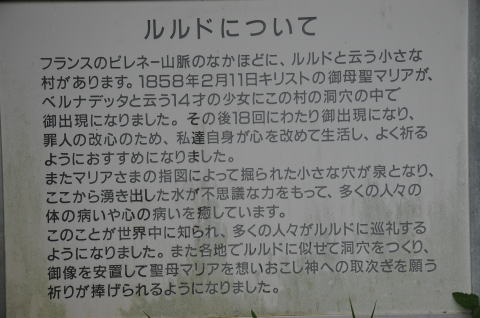 ルルドについて
フランスのピレネー山脈のなかほどに、ルルドと云う小さな
村があります。1858年2月11日キリストの御母聖マリアが、
ベルナデッタと云う14才の少女にこの村の洞穴の中で
御出現になりました。その後18回にわたり御出現になり、
罪人の改心のため、私達自身が心を改めて生活し、よく祈る
ようにおすすめになりました。
またマリアさまの指図によって掘られた小さな穴が泉となり、
ここから湧き出した水が不思議な力をもって、多くの人々の
体の病いや心の病いを癒しています。
このことが世界中に知られ、多くの人々がルルドに巡礼する
ようになりました。また各地でルルドに似せて洞穴をつくり、
御像を安置して聖母マリアを想いおこし神への取次ぎを願う
祈りが捧げられるようになりました。